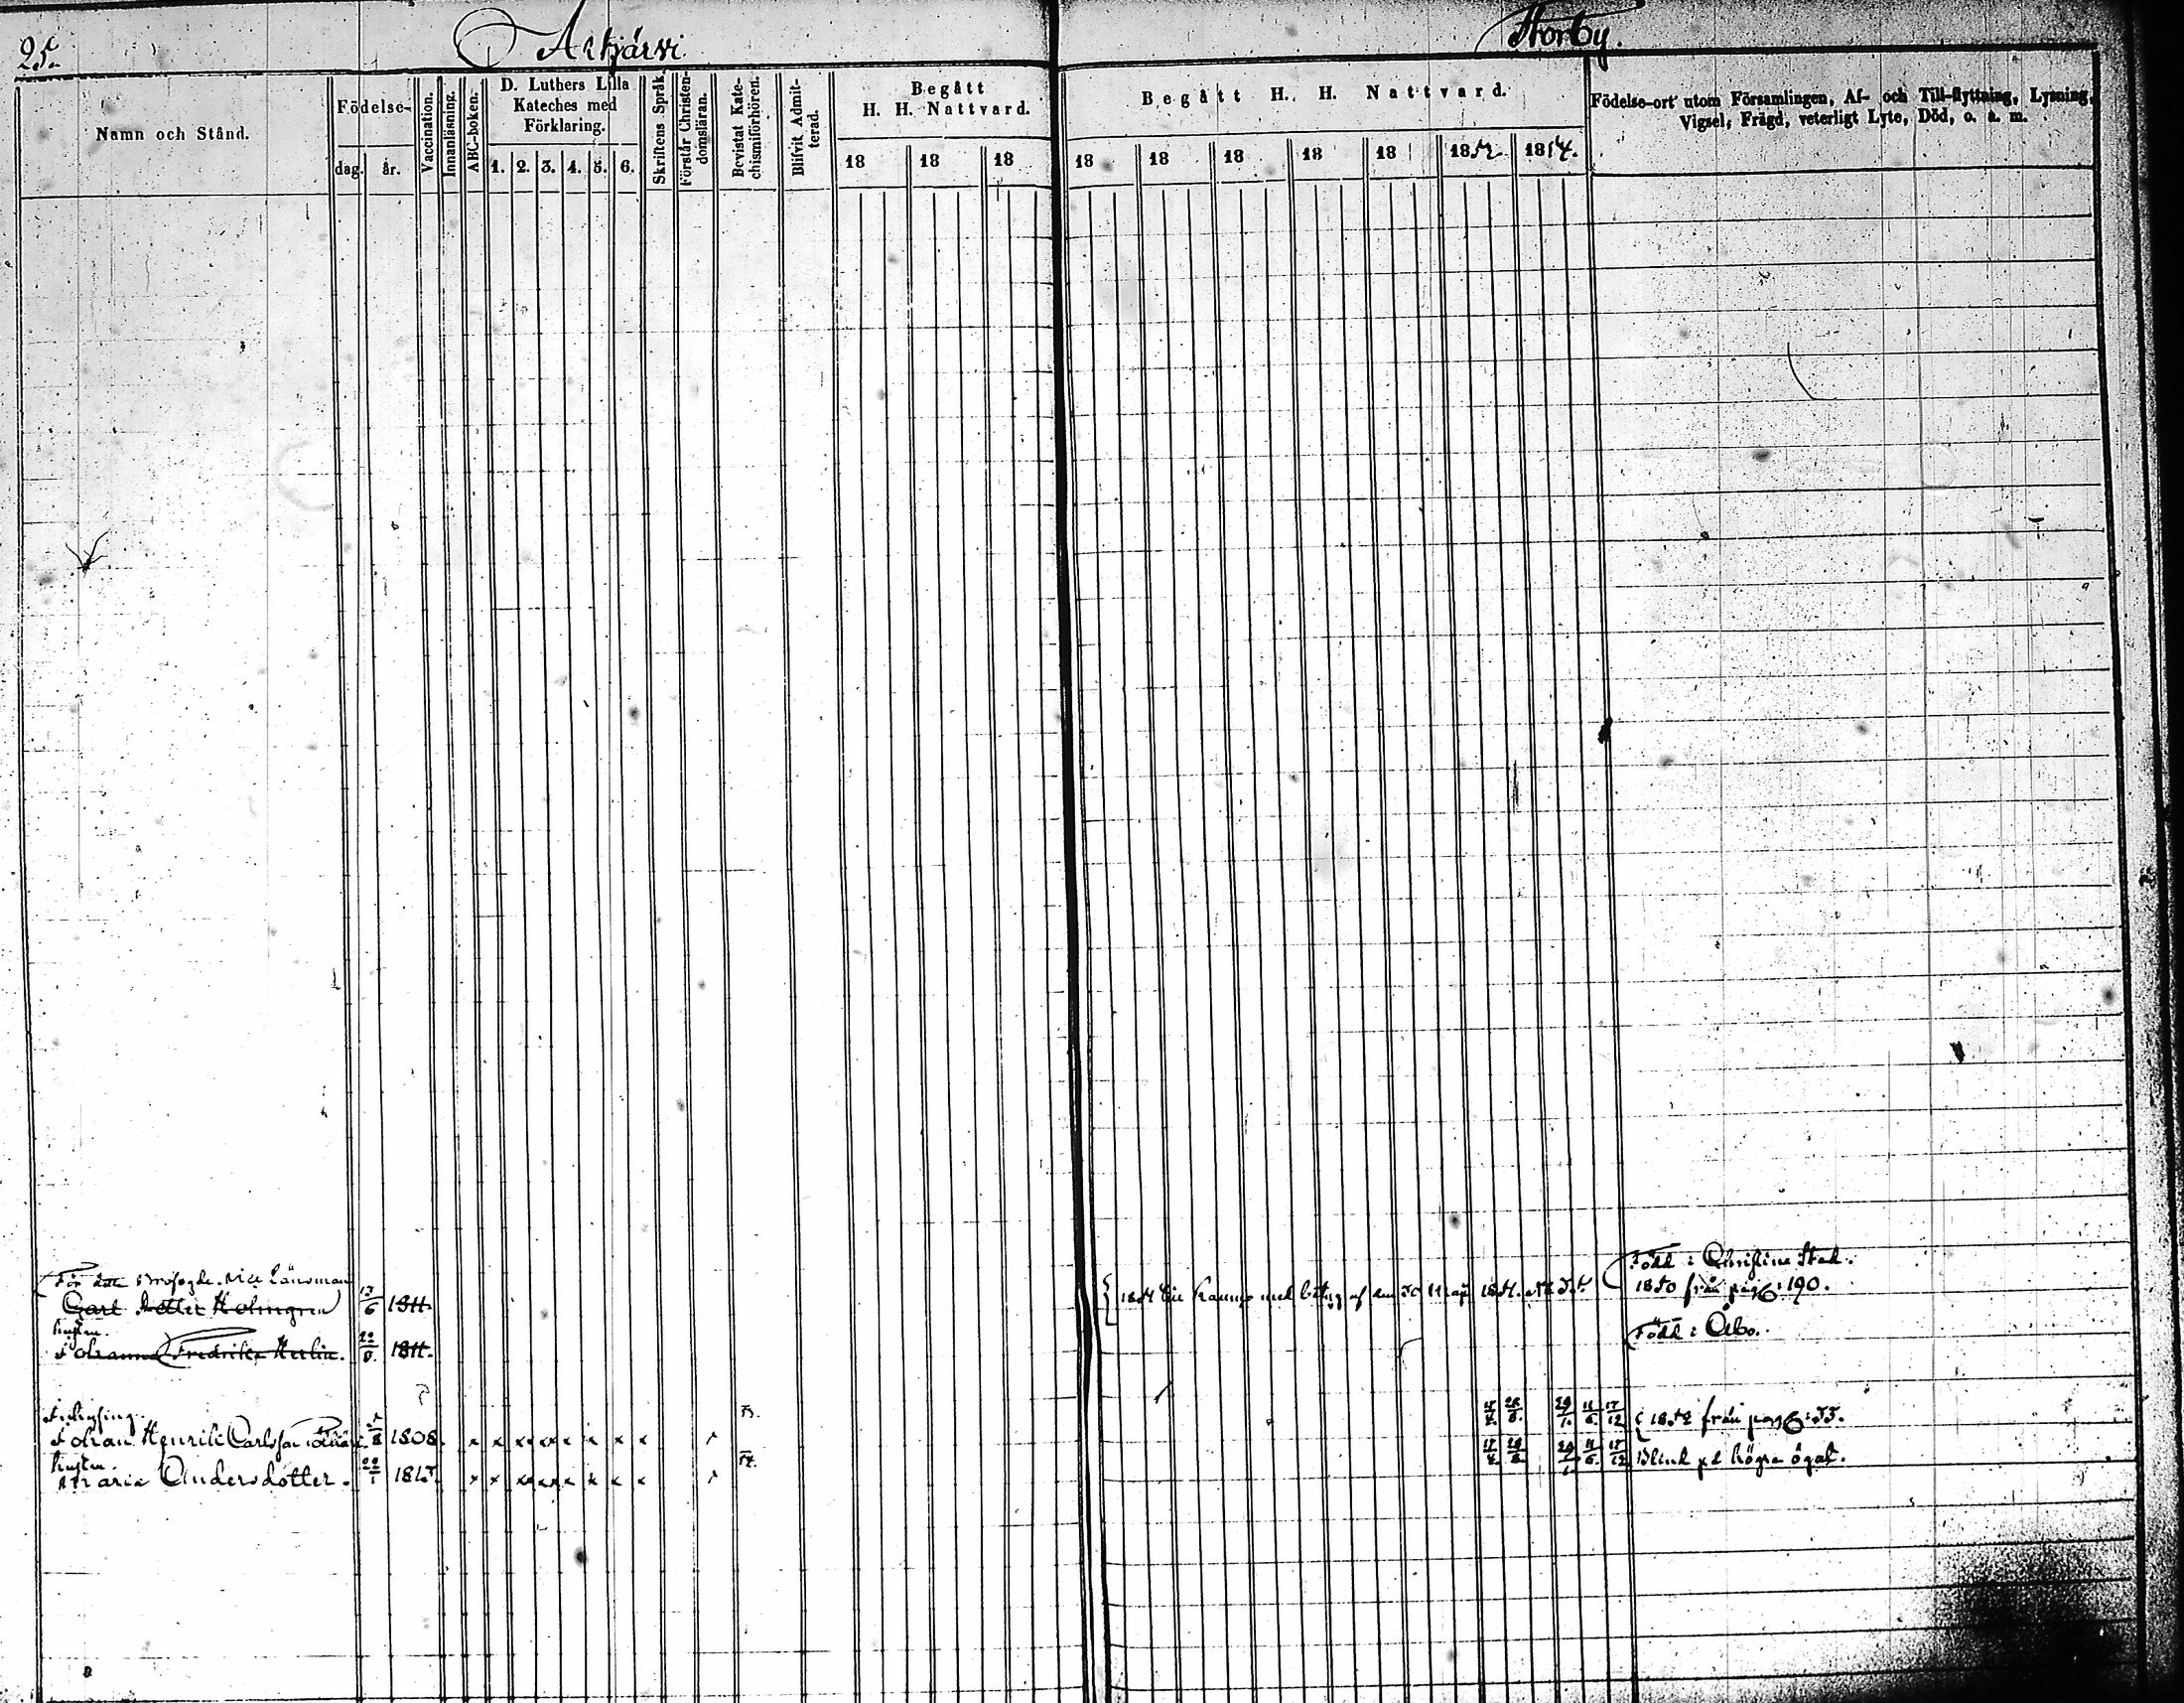 25.
Artjärvi
Storby.
Namn och Stånd.
Födelse-
dag. år.
Vaccination.
Innanläsning.
ABC-boken.
D. Luthers Lilla
Kateches med
Förklaring.
1. 2. 3. 4. 5. 6.
Skriftens Språk.
Förstår Christen-
domsläran.
Bevistat Kate-
chismiförhören.
Blifvit Admit-
terad.
Begått
H. H. Nattvard.
18 18 18
Begått H. H. Nattvard.
18 18 18 18 18 1852 1854.
Födelse-ort utom Församlingen, Af- och Till-flyttning, Lysning,
Vigsel, Frägd, veterligt Lyte, Död, o. a. m.
vice Länsman
Carl Petter Holmgren 13/6 1811.
Född i Christine Stad.
1850 från pag: 190.
Hustru.
Johanna Fredrika Herlin. 1811.
Född i Åbo.
Johan Henrik Carlsson 1808.
1852 från pag: 55.
Hustru.
Maria Andersdotter. 22/1
Blind på högra ögat.